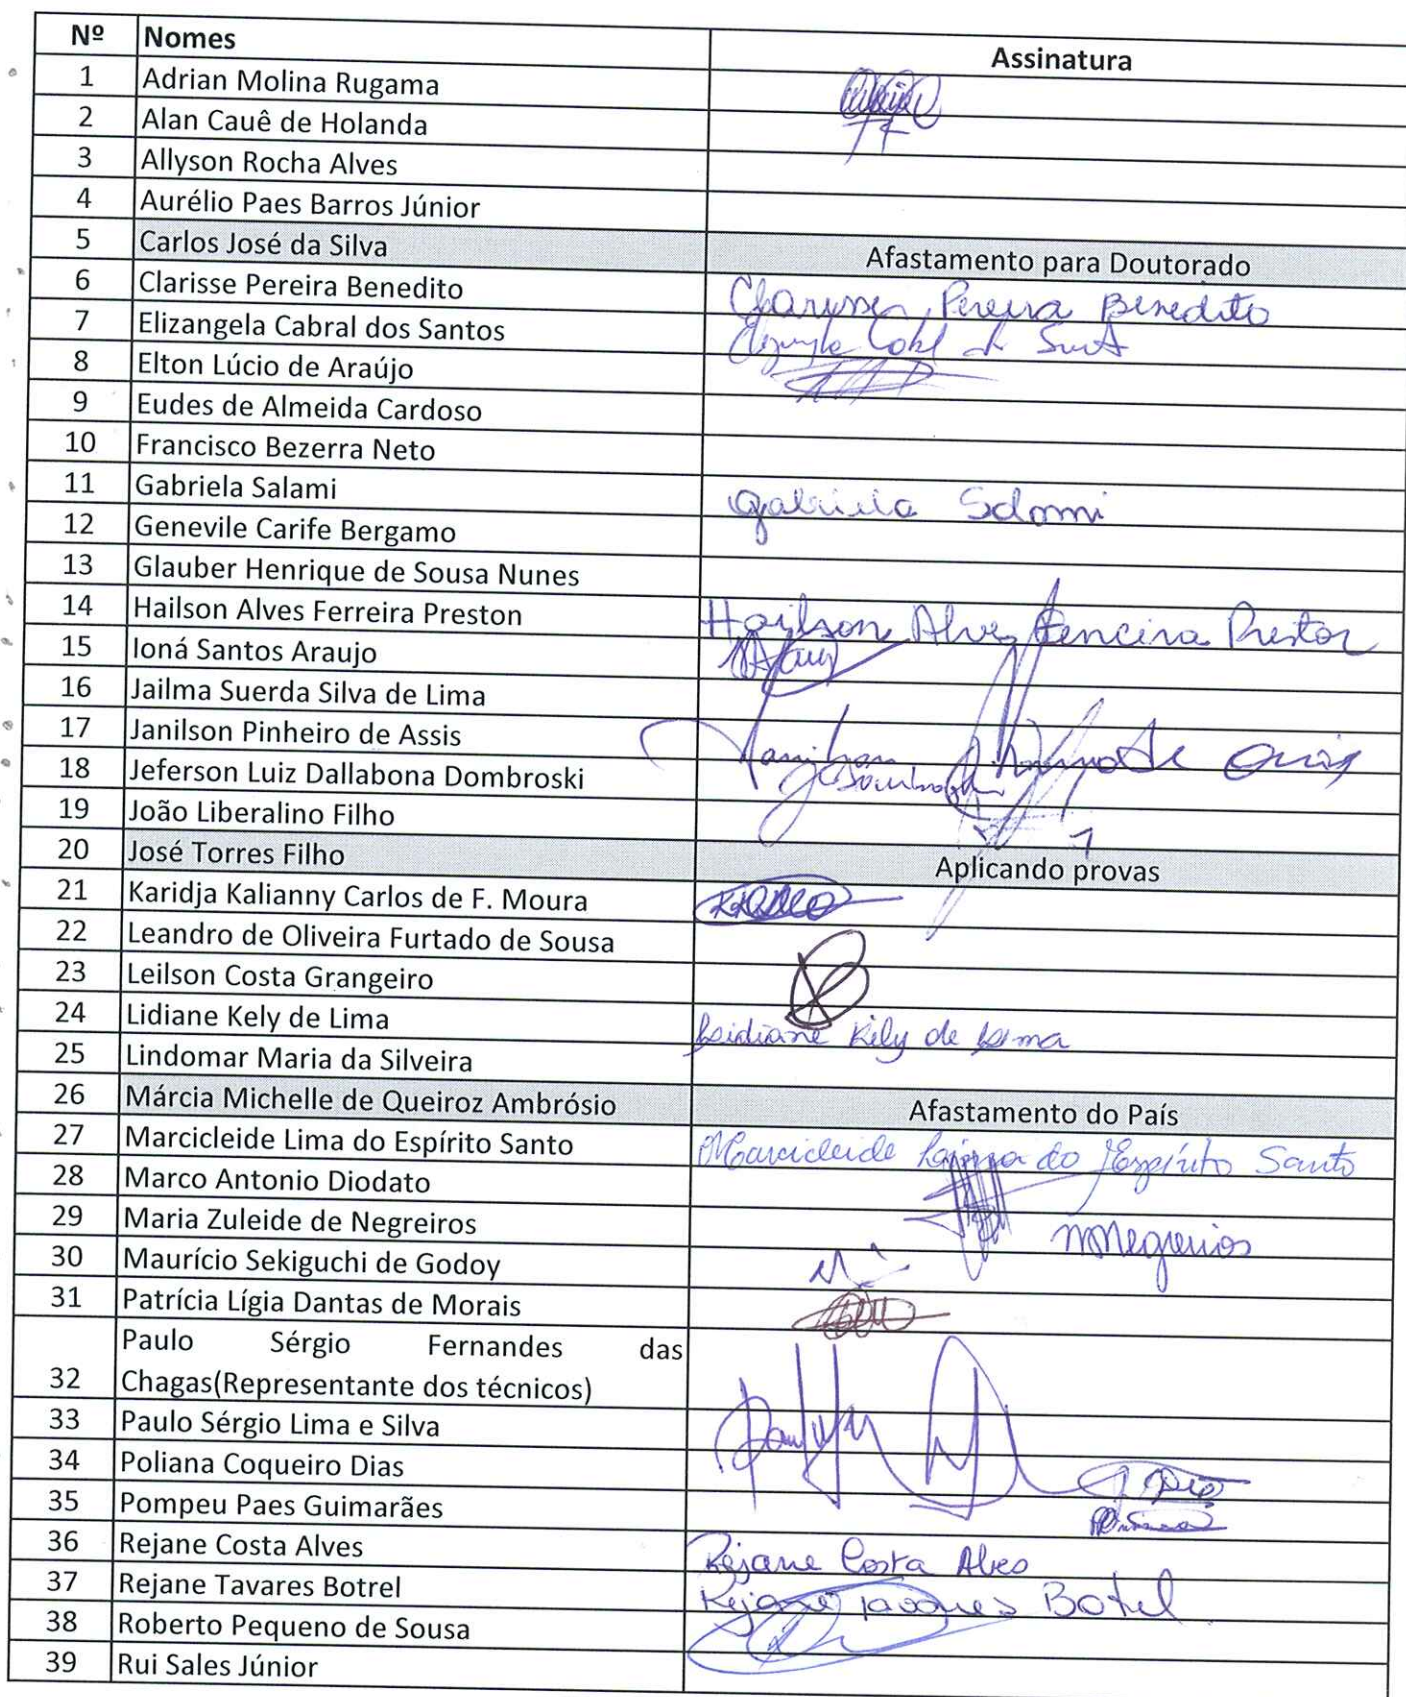 Nº Nomes Assinatura
1 Adrian Molina Rugama
2 Alan Cauê de Holanda
3 Allyson Rocha Alves
4 Aurélio Paes Barros Júnior
5 Carlos José da Silva Afastamento para Doutorado
6 Clarisse Pereira Benedito Clarisse Pereira Benedito
7 Elizangela Cabral dos Santos
8 Elton Lúcio de Araújo
9 Eudes de Almeida Cardoso
10 Francisco Bezerra Neto
11 Gabriela Salami Gabriela Salami
12 Genevile Carife Bergamo
13 Glauber Henrique de Sousa Nunes
14 Hailson Alves Ferreira Preston Hailson Alves Ferreira Preston
15 Ioná Santos Araujo
16 Jailma Suerda Silva de Lima
17 Janilson Pinheiro de Assis Janilson Pinheiro de Assis
18 Jeferson Luiz Dallabona Dombroski
19 João Liberalino Filho
20 José Torres Filho Aplicando provas
21 Karidja Kalianny Carlos de F. Moura
22 Leandro de Oliveira Furtado de Sousa
23 Leilson Costa Grangeiro
24 Lidiane Kely de Lima Lidiane Kely de Lima
25 Lindomar Maria da Silveira
26 Márcia Michelle de Queiroz Ambrósio Afastamento do País
27 Marcicleide Lima do Espírito Santo Marcicleide Lima do Espírito Santo
28 Marco Antonio Diodato
29 Maria Zuleide de Negreiros
30 Maurício Sekiguchi de Godoy
31 Patrícia Lígia Dantas de Morais
Paulo Sérgio Fernandes das
32 Chagas(Representante dos técnicos)
33 Paulo Sérgio Lima e Silva
34 Poliana Coqueiro Dias
35 Pompeu Paes Guimarães
36 Rejane Costa Alves Rejane Costa Alves
37 Rejane Tavares Botrel Rejane Tavares Botrel
38 Roberto Pequeno de Sousa
39 Rui Sales Júnior